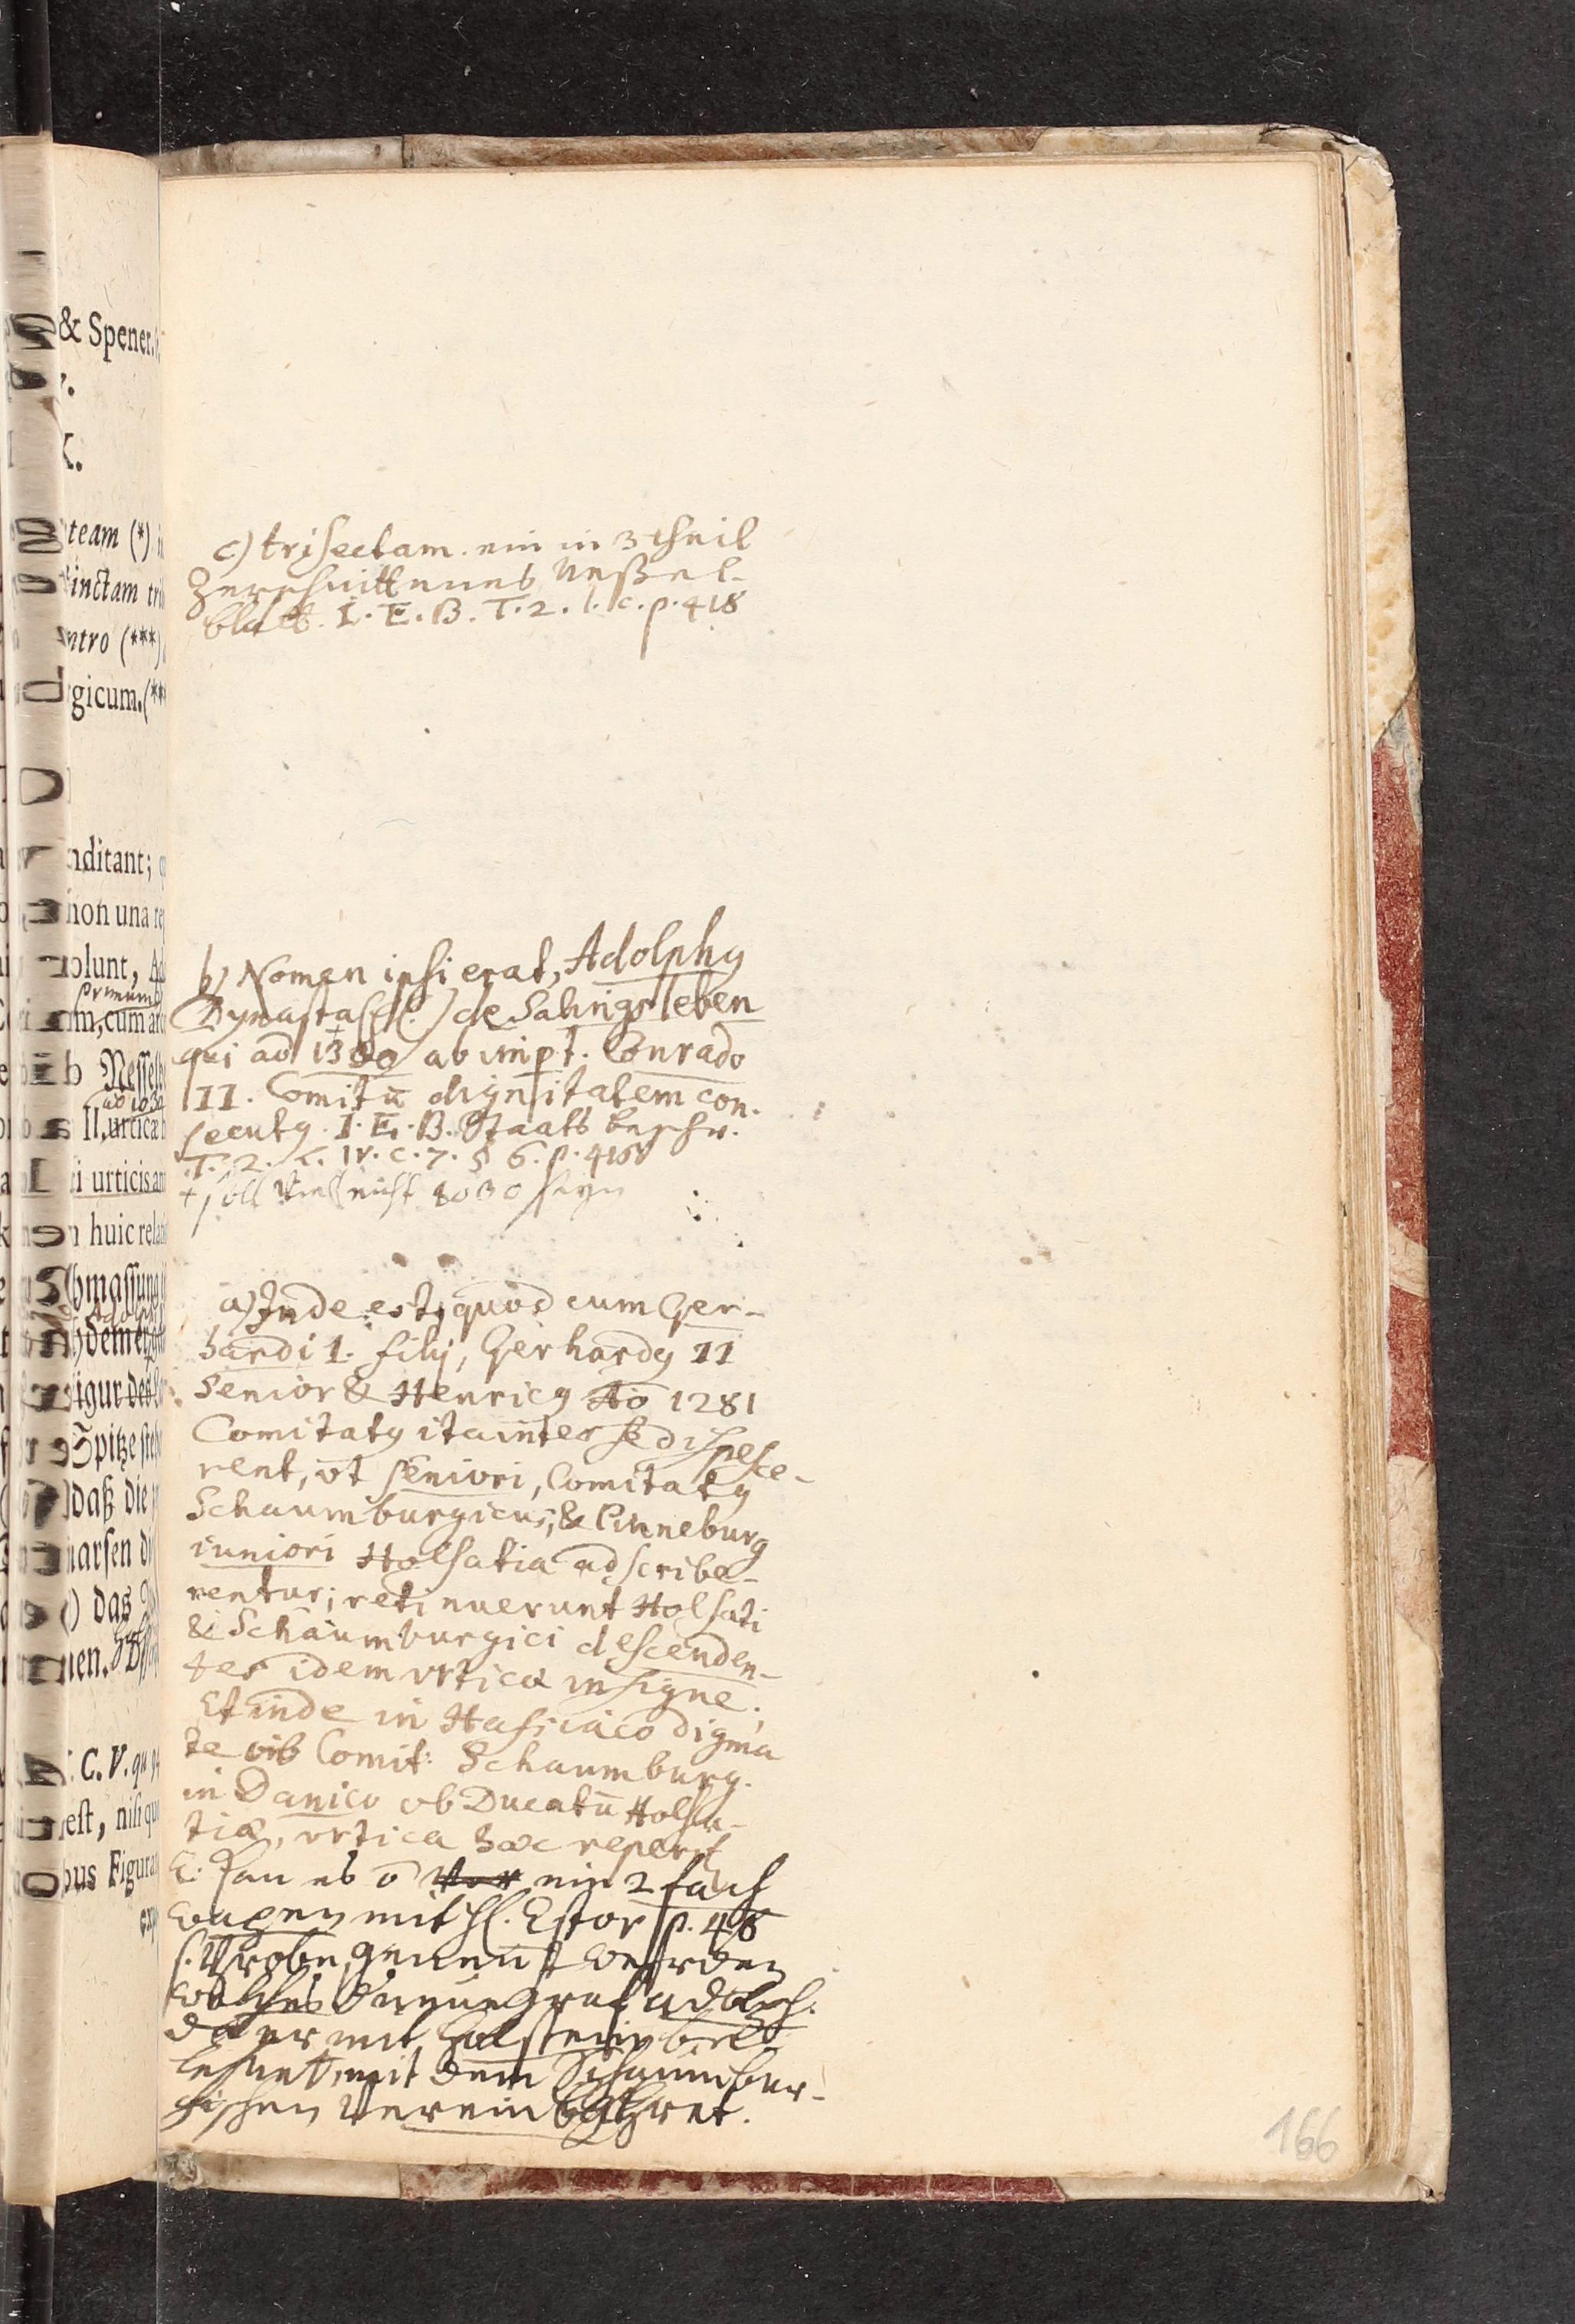 & Spener.
team (*)
inctam tri
ntro (***)
gicum.(**
nditant;
non una re
olunt, Ad
primum
m, cum ar
b Nessel
ao 1030
II, urticæ
i urticis an
huic rela
hmassung
Adolph
dem er
igur des
Spitze ste
daß die
arsen d
() das
nen.
C. V. qu
est, nisi qu
bus Figura
c) trisectam. ein in 3 theil
Zerschnittenes Neßel-
blatt. I. E. B. T. 2. l. c. p. 418
b) Nomen ipsi erat, Adolphy
Dynasta de Salingsleben
qui ao 1300 ab impt. Conrado
II. Comitū dignitatem con-
secuty. I. E. B. Staats beschr.
T. 2. L. IV. c. 7. § 6. p. 416
+ soll vielleicht 1030 seyn
a) Inde est, quod cum Ger-
hardi 1. filij, Gerhardy II
Senior & Henricy Ao 1281
Comitaty ita inter se dispesce-
rent, vt seniori, Comitaty
Schaumburgicus, & Pinneburg
iuniori Holsatia adscribe-
rentur; retinuerunt Holsati
& Schaumburgici descenden-
tes idem vrticæ insigne.
Et inde in Hassiaco digma
te ob Comit: Schaumburg.
in Danico ob Ducatū Holsa-
tiæ, vrtica hæc reperit
E. kan es ō vor ein 2 fach
wapen mit H. Estor p. 48
s. Probe, genennt werden
welches Graf Adolph.
da er mit Holstein be-
lehnet, mit dem Schaumbur-
gischen Vereinbahret.
166